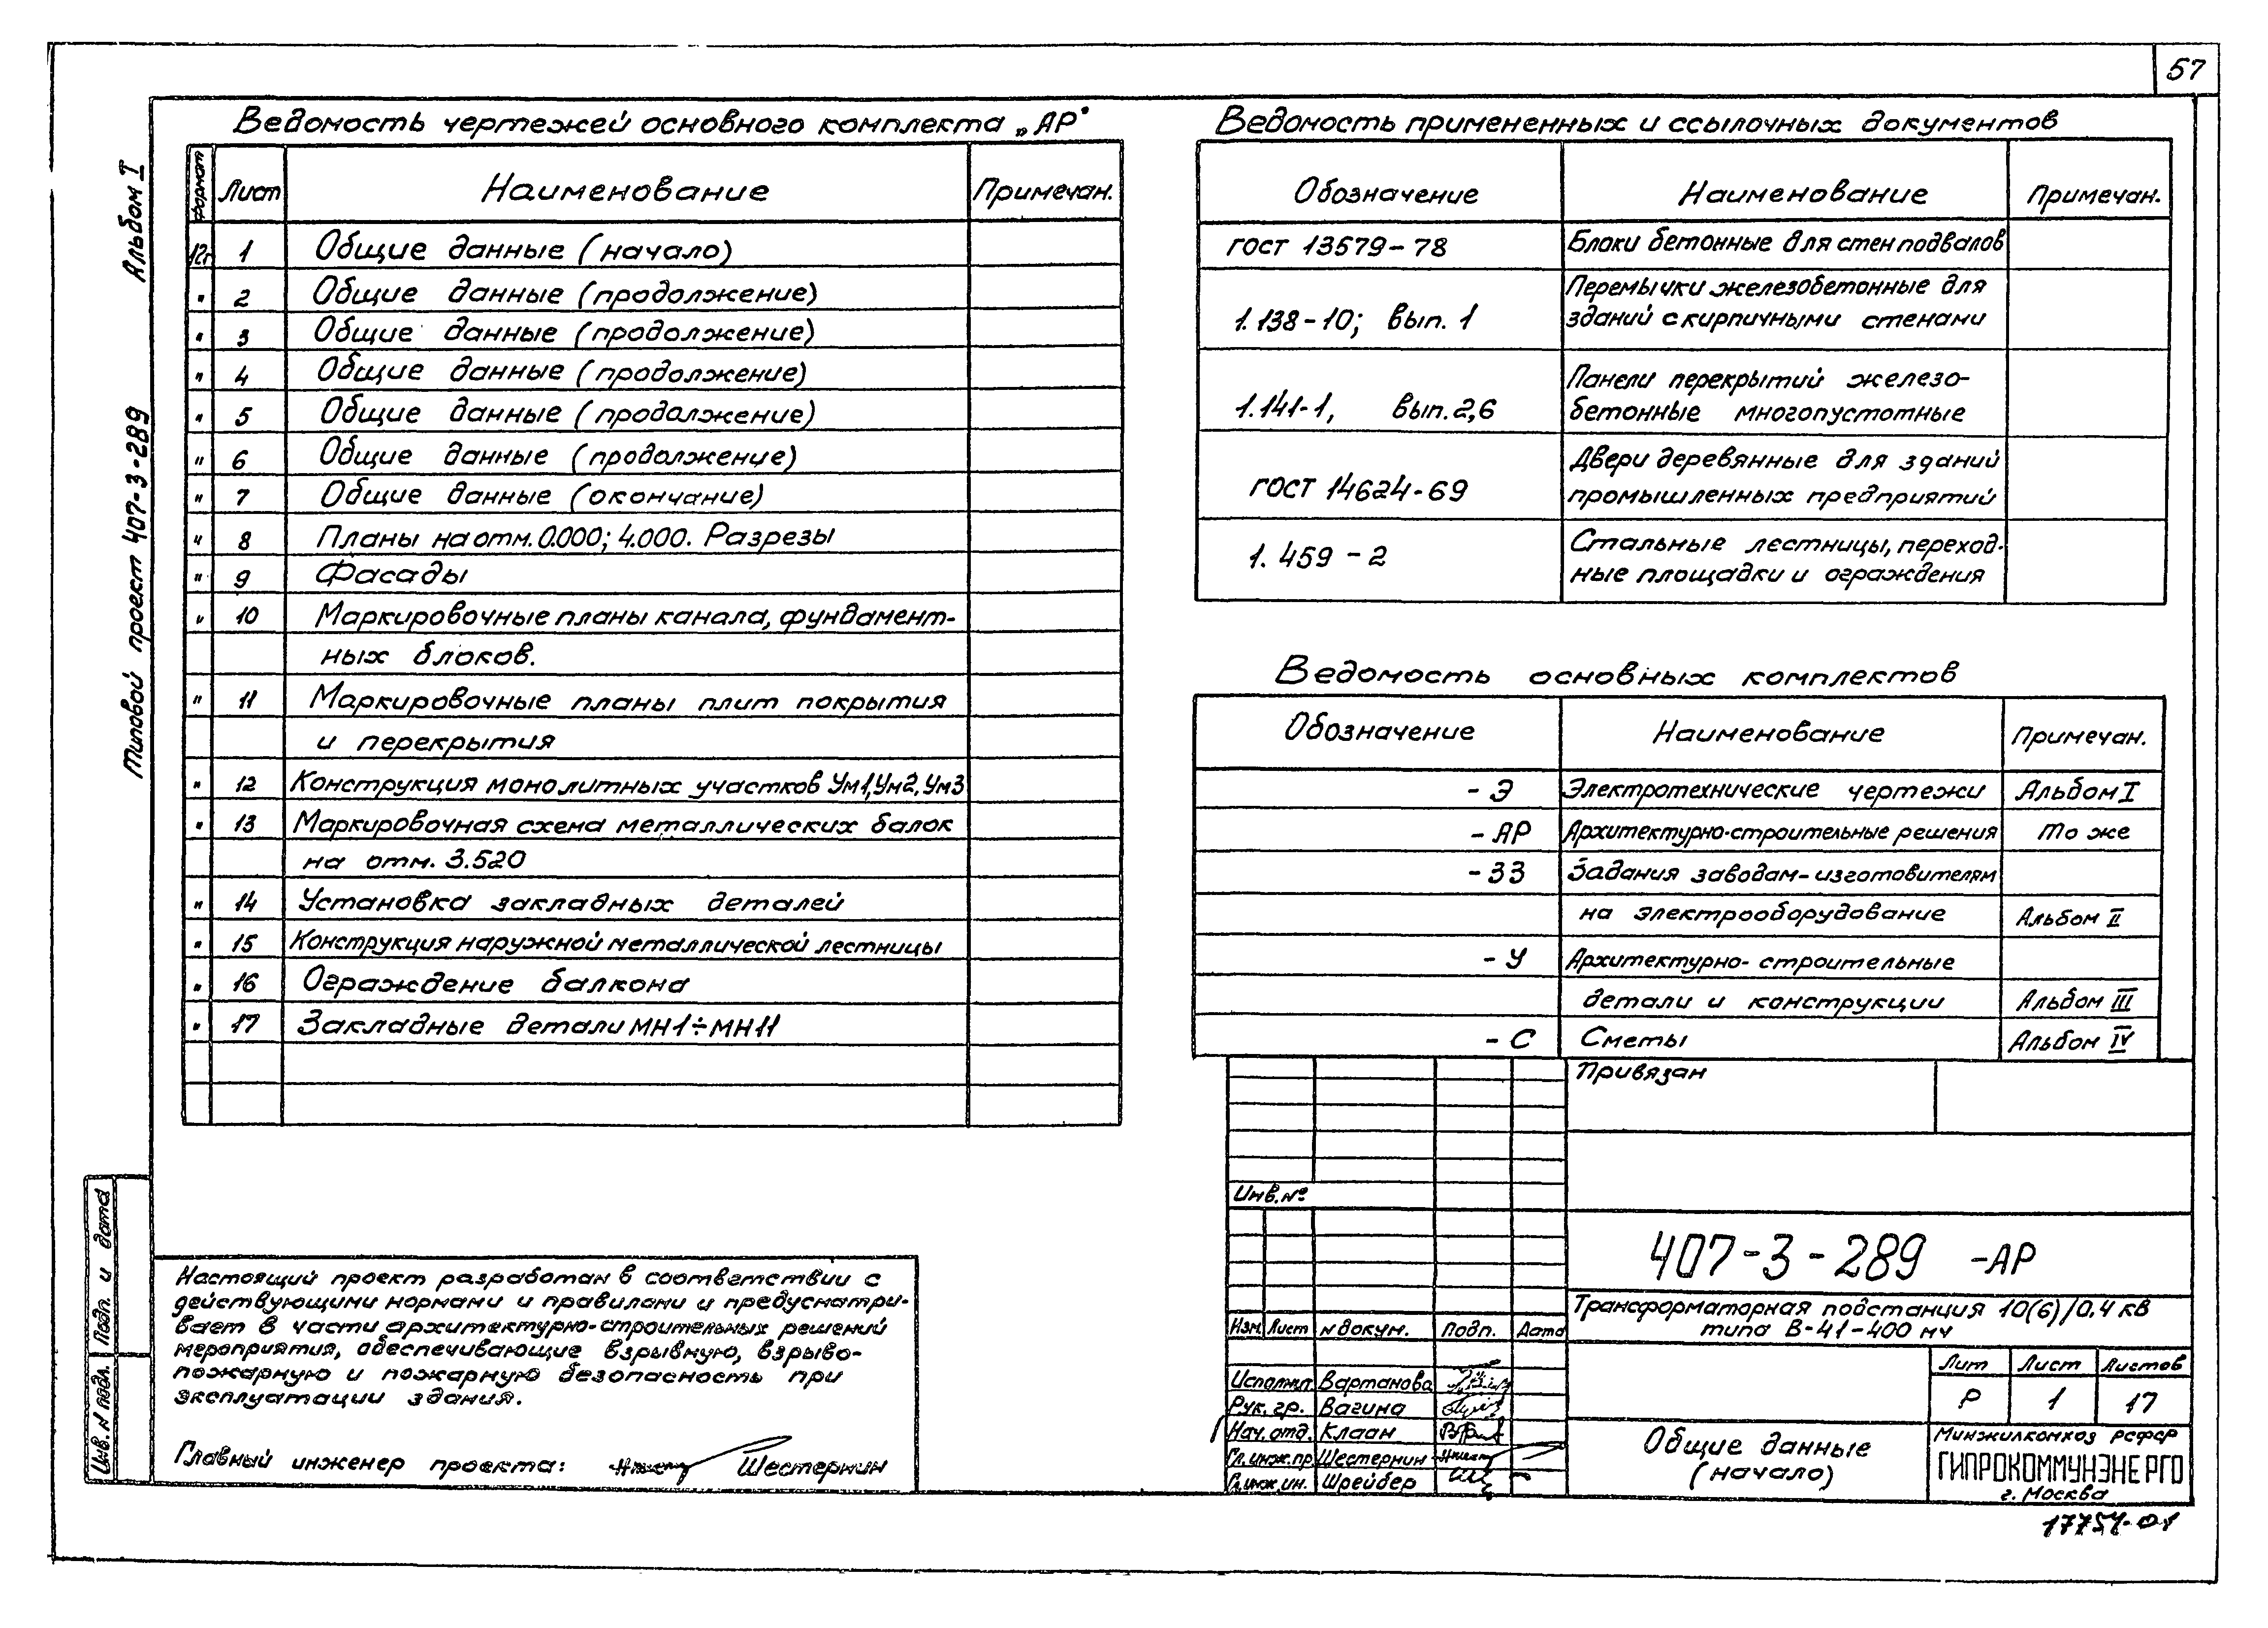 57
Альбом I
Типовой проект 407-3-289
Ведомость чертежей основного комплекта „АР"
формат Лист Наименование Примечан.
12г 1 Общие данные (начало)
" 2 Общие данные (продолжение)
" 3 Общие данные (продолжение)
" 4 Общие данные (продолжение)
" 5 Общие данные (продолжение)
" 6 Общие данные (продолжение)
" 7 Общие данные (окончание)
" 8 Планы на отм. 0.000; 4.000. Разрезы
" 9 Фасады
" 10 Маркировочные планы канала, фундамент-
ных блоков.
" 11 Маркировочные планы плит покрытия
и перекрытия
" 12 Конструкция монолитных участков Ум1, Ум2, Ум3
" 13 Маркировочная схема металлических балок
на отм. 3.520
" 14 Установка закладных деталей
" 15 Конструкция наружной металлической лестницы
" 16 Ограждение балкона
" 17 Закладные детали МН1÷МН11
Ведомость примененных и ссылочных документов
Обозначение Наименование Примечан.
ГОСТ 13579-78 Блоки бетонные для стен подвалов
Перемычки железобетонные для
1.138-10; вып. 1 зданий с кирпичными стенами
Панели перекрытий железо-
1.141-1, вып. 2,6 бетонные многопустотные
Двери деревянные для зданий
ГОСТ 14624-69 промышленных предприятий
Стальные лестницы, переход-
1.459-2 ные площадки и ограждения
Ведомость основных комплектов
Обозначение Наименование Примечан.
-Э Электротехнические чертежи Альбом I
-АР Архитектурно-строительные решения То же
-ЗЗ Задания заводам-изготовителям
на электрооборудование Альбом II
-У Архитектурно-строительные
детали и конструкции Альбом III
-С Сметы Альбом IV
Привязан
Инв. №
407-3-289 -АР
Трансформаторная подстанция 10(6)/0.4 кв
типа В-41-400 му
Изм. Лист N докум. Подп. Дата
Лит Лист Листов
Р 1 17
Исполнил Вартанова
Рук. гр. Вагина
Нач. отд. Клаан
Гл. инж. пр. Шестернин
Гл. инж. ин. Шрейбер
Общие данные
(начало)
Минжилкомхоз РСФСР
ГИПРОКОММУНЭНЕРГО
г. Москва
17754-01
Настоящий проект разработан в соответствии с
действующими нормами и правилами и предусматри-
вает в части архитектурно-строительных решений
мероприятия, обеспечивающие взрывную, взрыво-
пожарную и пожарную безопасность при
эксплуатации здания.
Главный инженер проекта: Шестернин
Инв. N подл. Подп. и дата